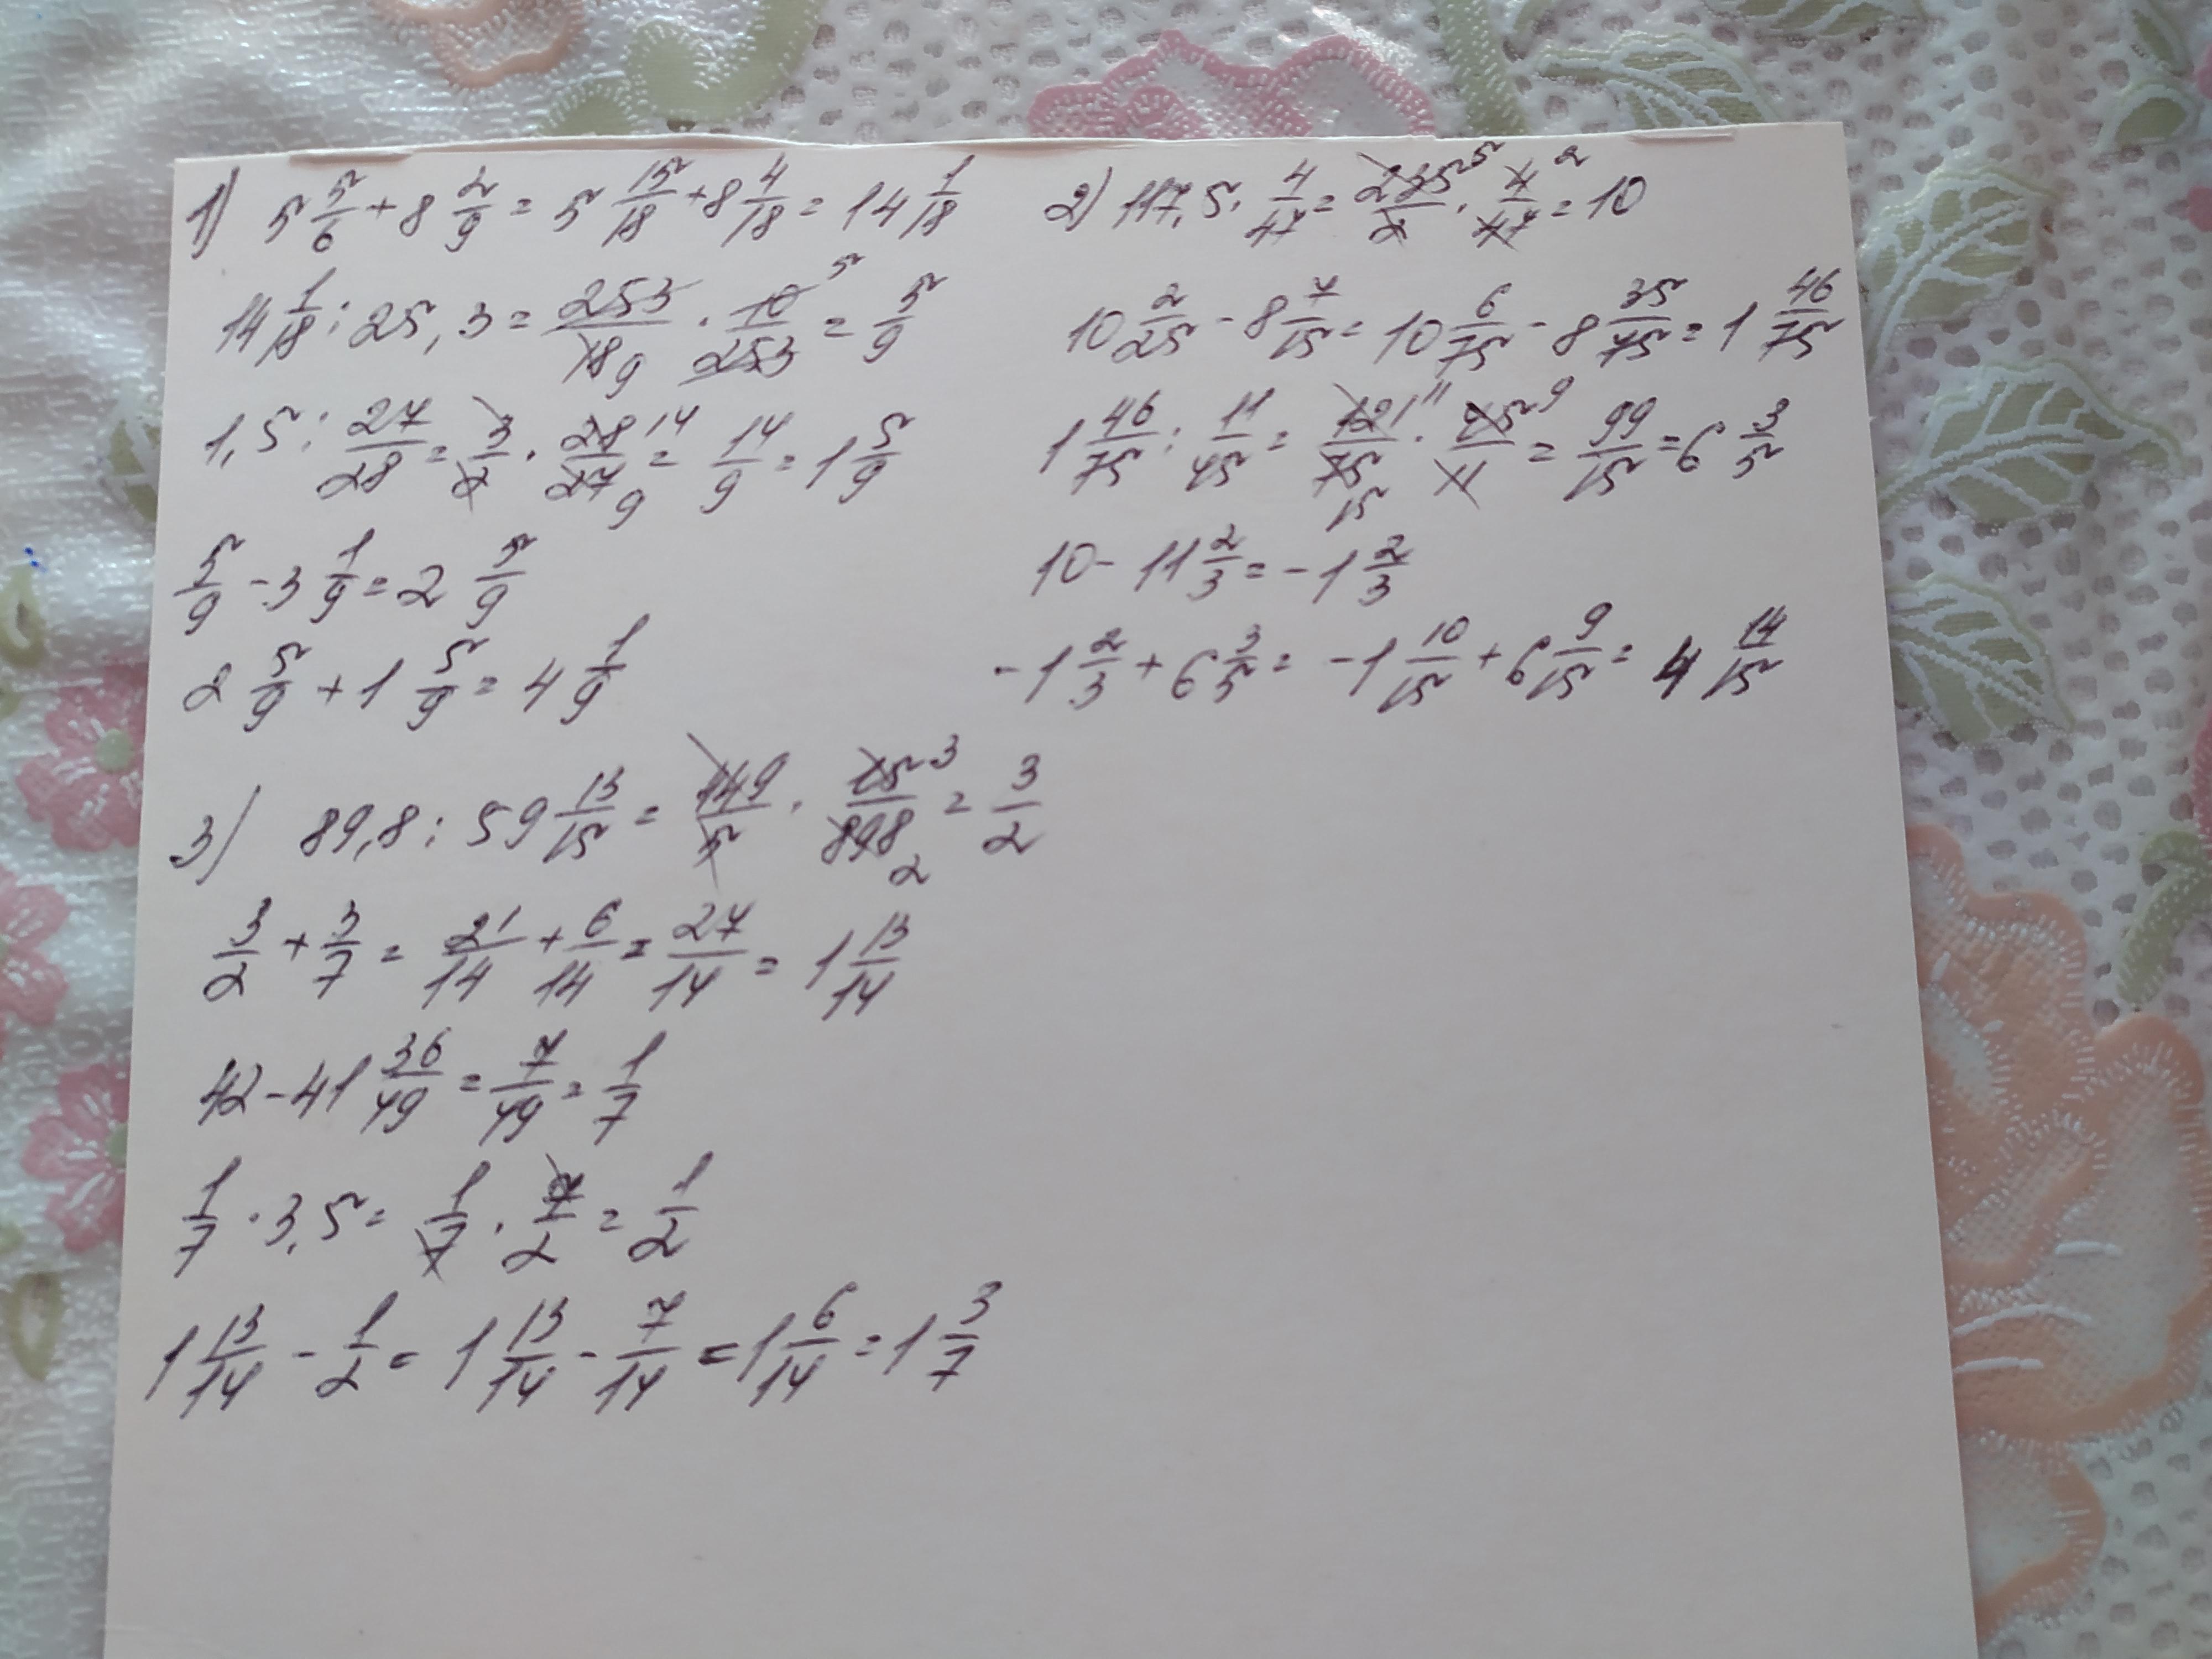 1) 5 5/6 + 8 2/9 = 5 15/18 + 8 4/18 = 14 1/18
14 1/18 : 25,3 = 253/18 9 · 10 5/253 = 5/9
1,5 : 27/28 = 3/2 · 28 14/27 9 = 14/9 = 1 5/9
5/9 - 3 1/9 = 2 5/9
2 5/9 + 1 5/9 = 4 1/9
2) 117,5 · 4/47 = 235 5/2 · 4 2/47 = 10
10 2/25 - 8 7/15 = 10 6/75 - 8 35/75 = 1 46/75
1 46/75 : 11/45 = 121 11/75 15 · 45 9/11 = 99/15 = 6 3/5
10 - 11 2/3 = - 1 2/3
- 1 2/3 + 6 3/5 = - 1 10/15 + 6 9/15 = 4 14/15
3) 89,8 : 59 13/15 = 449/5 · 15 3/898 2 = 3/2
3/2 + 3/7 = 21/14 + 6/14 = 27/14 = 1 13/14
42 - 41 36/49 = 7/49 = 1/7
1/7 · 3,5 = 1/7 · 7/2 = 1/2
1 13/14 - 1/2 = 1 13/14 - 7/14 = 1 6/14 = 1 3/7